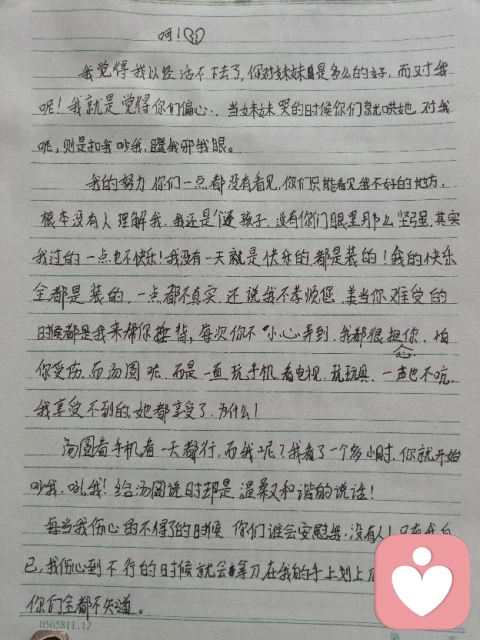 呵！
我觉得我以经活不下去了，你对妹妹是多么的好，而对我
呢！我就是觉得你们偏心，当妹妹哭的时候你们就哄她 对我
呢，则是扣我 吵我，瞪我 那我眼。
我的努力 你们一点都没有看见，你们只能看见我不好的地方，
根本没有人理解我，我还是个孩子，没有你们眼里那么坚强，其实
我过的一点也不快乐！我没有一天就是快乐的都是装的！我的快乐
全都是装的，一点都不真实，还说我不孝说您，当你难受的
时候都是我来帮你捶背，每次你不小心弄到，我都很担心你，怕
你受伤，而汤圆呢，而是一直玩手机 看电视，玩玩具，一声也不吭，
我享受不到的，她都享受了，为什么！
汤圆看手机看一天都行，而我呢？我看了一个多小时，你就开始
吵我，吼我！给汤圆说时却是温柔又和谐的说话！
每当我伤心的不得了的时候 你们谁会安慰我，没有人！只有我自
己，我伤心到不行的时候就会拿刀在我的手上划上
你们全都不知道。
0565811.12